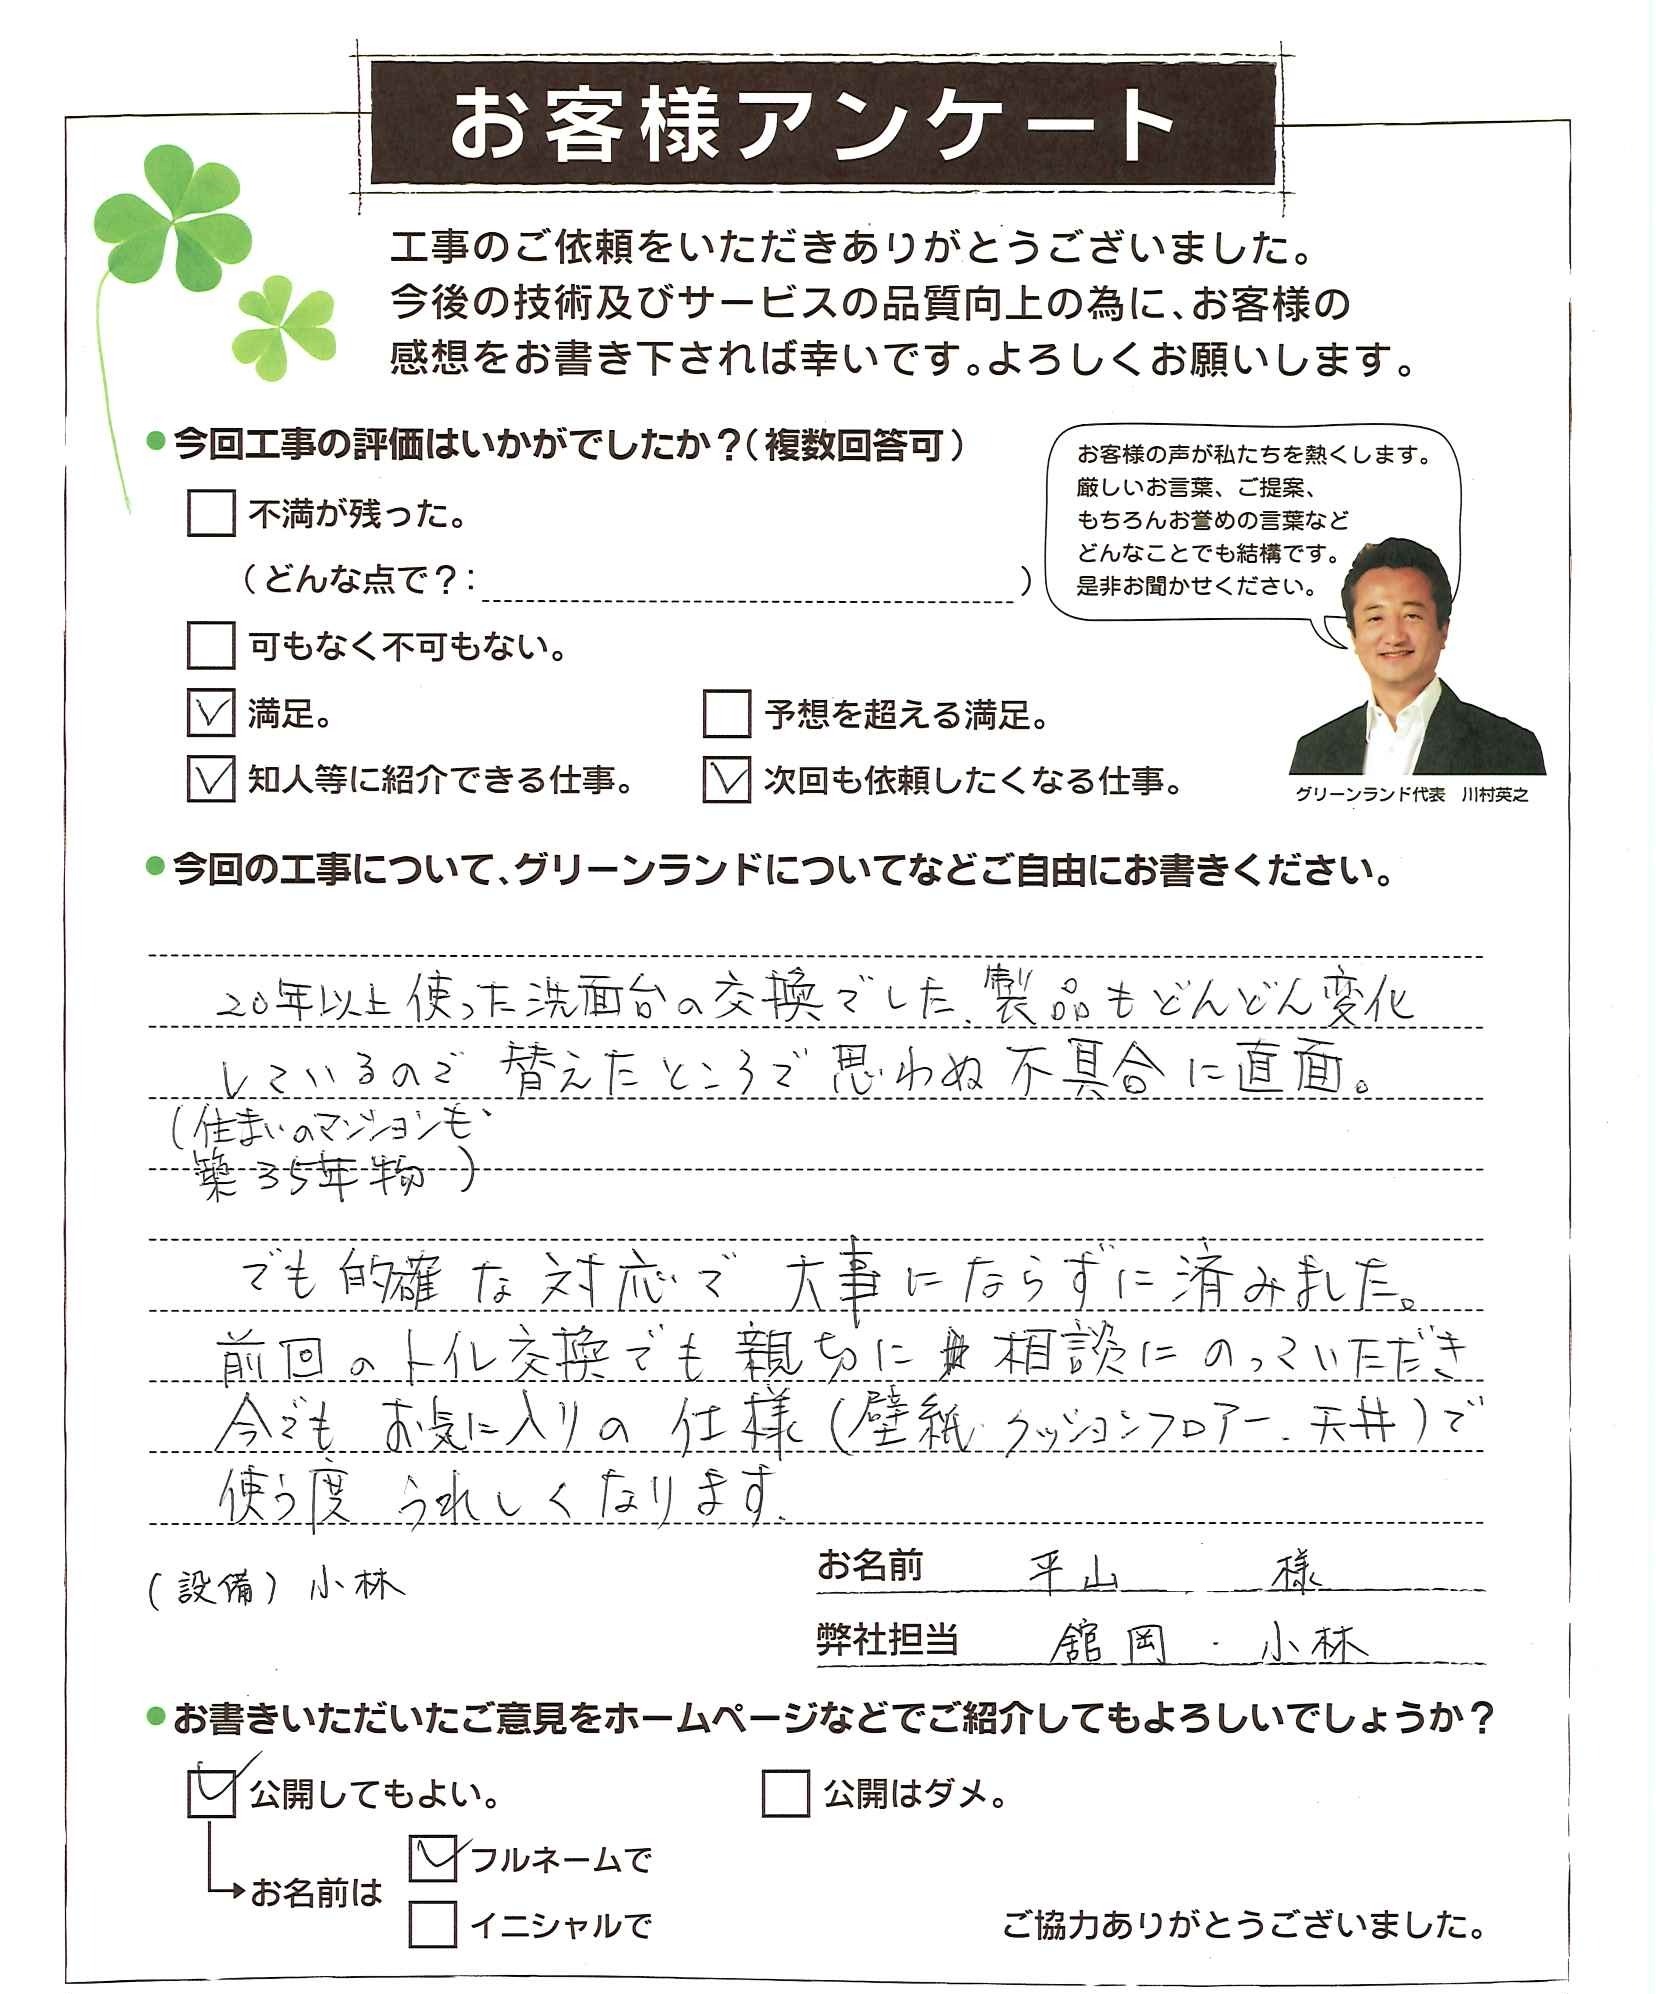 お客様アンケート
工事のご依頼をいただきありがとうございました。
今後の技術及びサービスの品質向上の為に、お客様の
感想をお書き下されば幸いです。よろしくお願いします。
●今回工事の評価はいかがでしたか？（複数回答可）
お客様の声が私たちを熱くします。
厳しいお言葉、ご提案、
もちろんお誉めの言葉など
どんなことでも結構です。
是非お聞かせください。
グリーンランド代表 川村英之
不満が残った。
（どんな点で？： ）
可もなく不可もない。
満足。
予想を超える満足。
知人等に紹介できる仕事。
次回も依頼したくなる仕事。
●今回の工事について、グリーンランドについてなどご自由にお書きください。
20年以上使った洗面台の交換でした、製品もどんどん変化
しているので替えたところで思わぬ不具合に直面。
（住まいのマンションも、
築35年物）
でも的確な対応で大事にならずに済みました。
前回のトイレ交換でも親切に相談にのっていただき
今でもお気に入りの仕様（壁紙、クッションフロアー、天井）で
使う度うれしくなります。
（設備）小林
お名前 平山 様
弊社担当 舘岡・小林
●お書きいただいたご意見をホームページなどでご紹介してもよろしいでしょうか？
公開してもよい。
公開はダメ。
お名前は
フルネームで
イニシャルで
ご協力ありがとうございました。